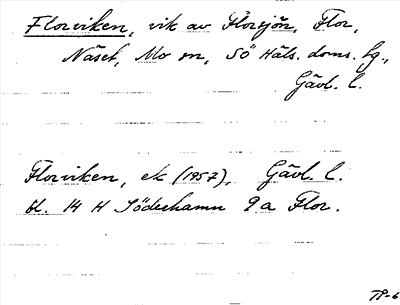 Florviken, vik av Florsjön, Flor,
Näset, Mo sn, Sö Häls. doms. tg.,
Gävl. l.
Florviken, ek (1957), Gävl. l.
bl. 14 H Söderhamn 9 a Flor.
TP-6